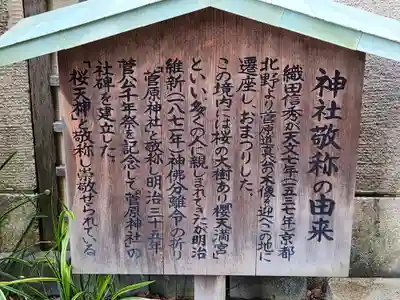 神社敬称の由来
織田信秀が天文七年(一五三七年)京都
北野より菅原道真公の木像を迎へこの地に
遷座し、おまつりした。
この境内には桜の大樹あり櫻天満宮
といい多くの人に親しまれてきたが明治
維新(一八七一年)神佛分離令の折り
「菅原神社」と敬称し明治三十五年
菅公千年祭を記念して「菅原神社」の
社碑を建立した。
「桜天神」と敬称し崇敬せられている